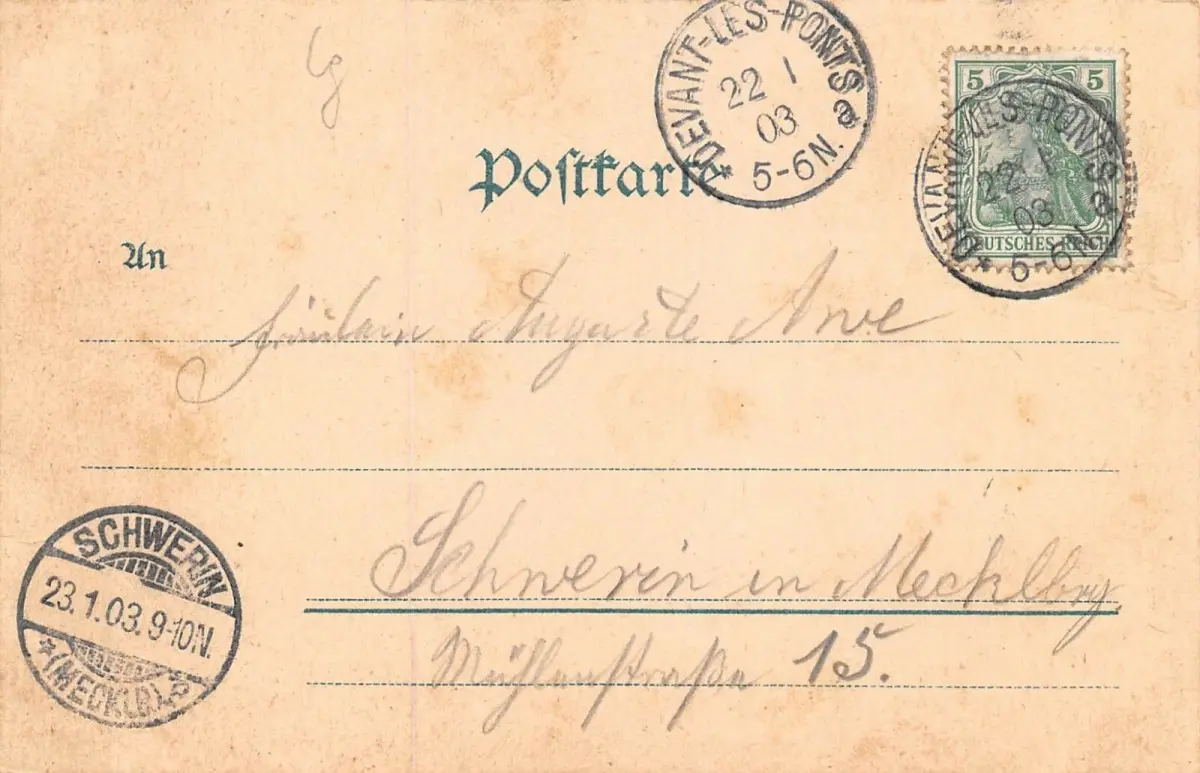 lg
DEVANT-LES-PONTS
* a
22 1
03
5-6N.
5 5
DEUTSCHES REICH
DEVANT-LES-PONTS
* a
22 1
03
5-6N.
Poſtkarte
An
Fräulein Auguste Arve
Schwerin in Mecklbrg
Mühlenstraße 15.
SCHWERIN
23.1.03.9-10N.
* (MECKLB)